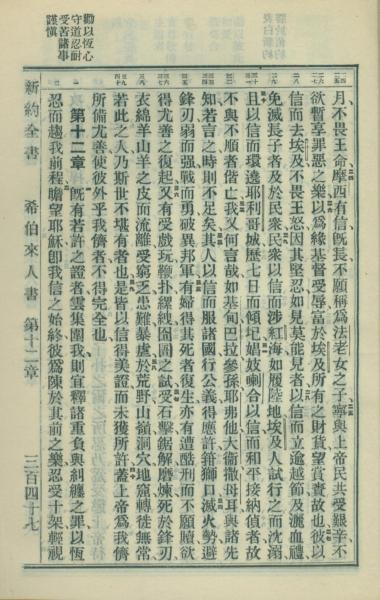 勸以恆心
守道忍耐
受苦諸事
謹慎
月不畏王命摩西有信旣長不願稱爲法老女之子寧與上帝民共受艱辛不
欲暫享罪惡之樂以爲緣基督受辱富於埃及所有之財貨望賞賚故也彼以
信而去埃及不畏王怒因其堅忍如見莫能見者以信而立逾越節及灑血禮
免滅長子者及於民衆民衆以信而涉紅海如履陸地埃及人試行之而沈溺
且以信而環邊耶利哥城歷七日而傾圮娼妓喇合以信而和平接納偵者故
不與不順者偕亡我又何言哉如基甸巴拉參孫耶弗他大衞撒母耳與諸先
知若言之時則不足矣其人以信而服諸國行公義得應許箝獅口滅火勢避
鋒刃弱而强戰而勇破異邦軍有婦得其死者復生亦有遭酷刑而不願贖欲
得尤善之復起又有受戲玩鞭扑縲絏囹圄之試受石擊鋸解磨煉死於鋒刃
衣綿羊山羊之皮而流離受窮乏患難暴虐於荒野山嶺洞穴地窟轉徙無常
若此之人乃斯世不堪有者也是皆以信得美證而未獲所許蓋上帝爲我儕
所備尤善使彼外乎我儕者不得完全也
第十二章 旣有若許之證者雲集圍我則宜釋諸重負與糾纏之罪以恆
忍而趨我前程瞻望耶穌卽我信之始終彼爲陳於其前之樂忍受十架輕視
新約全書 希伯來人書 第十二章 三百四十七